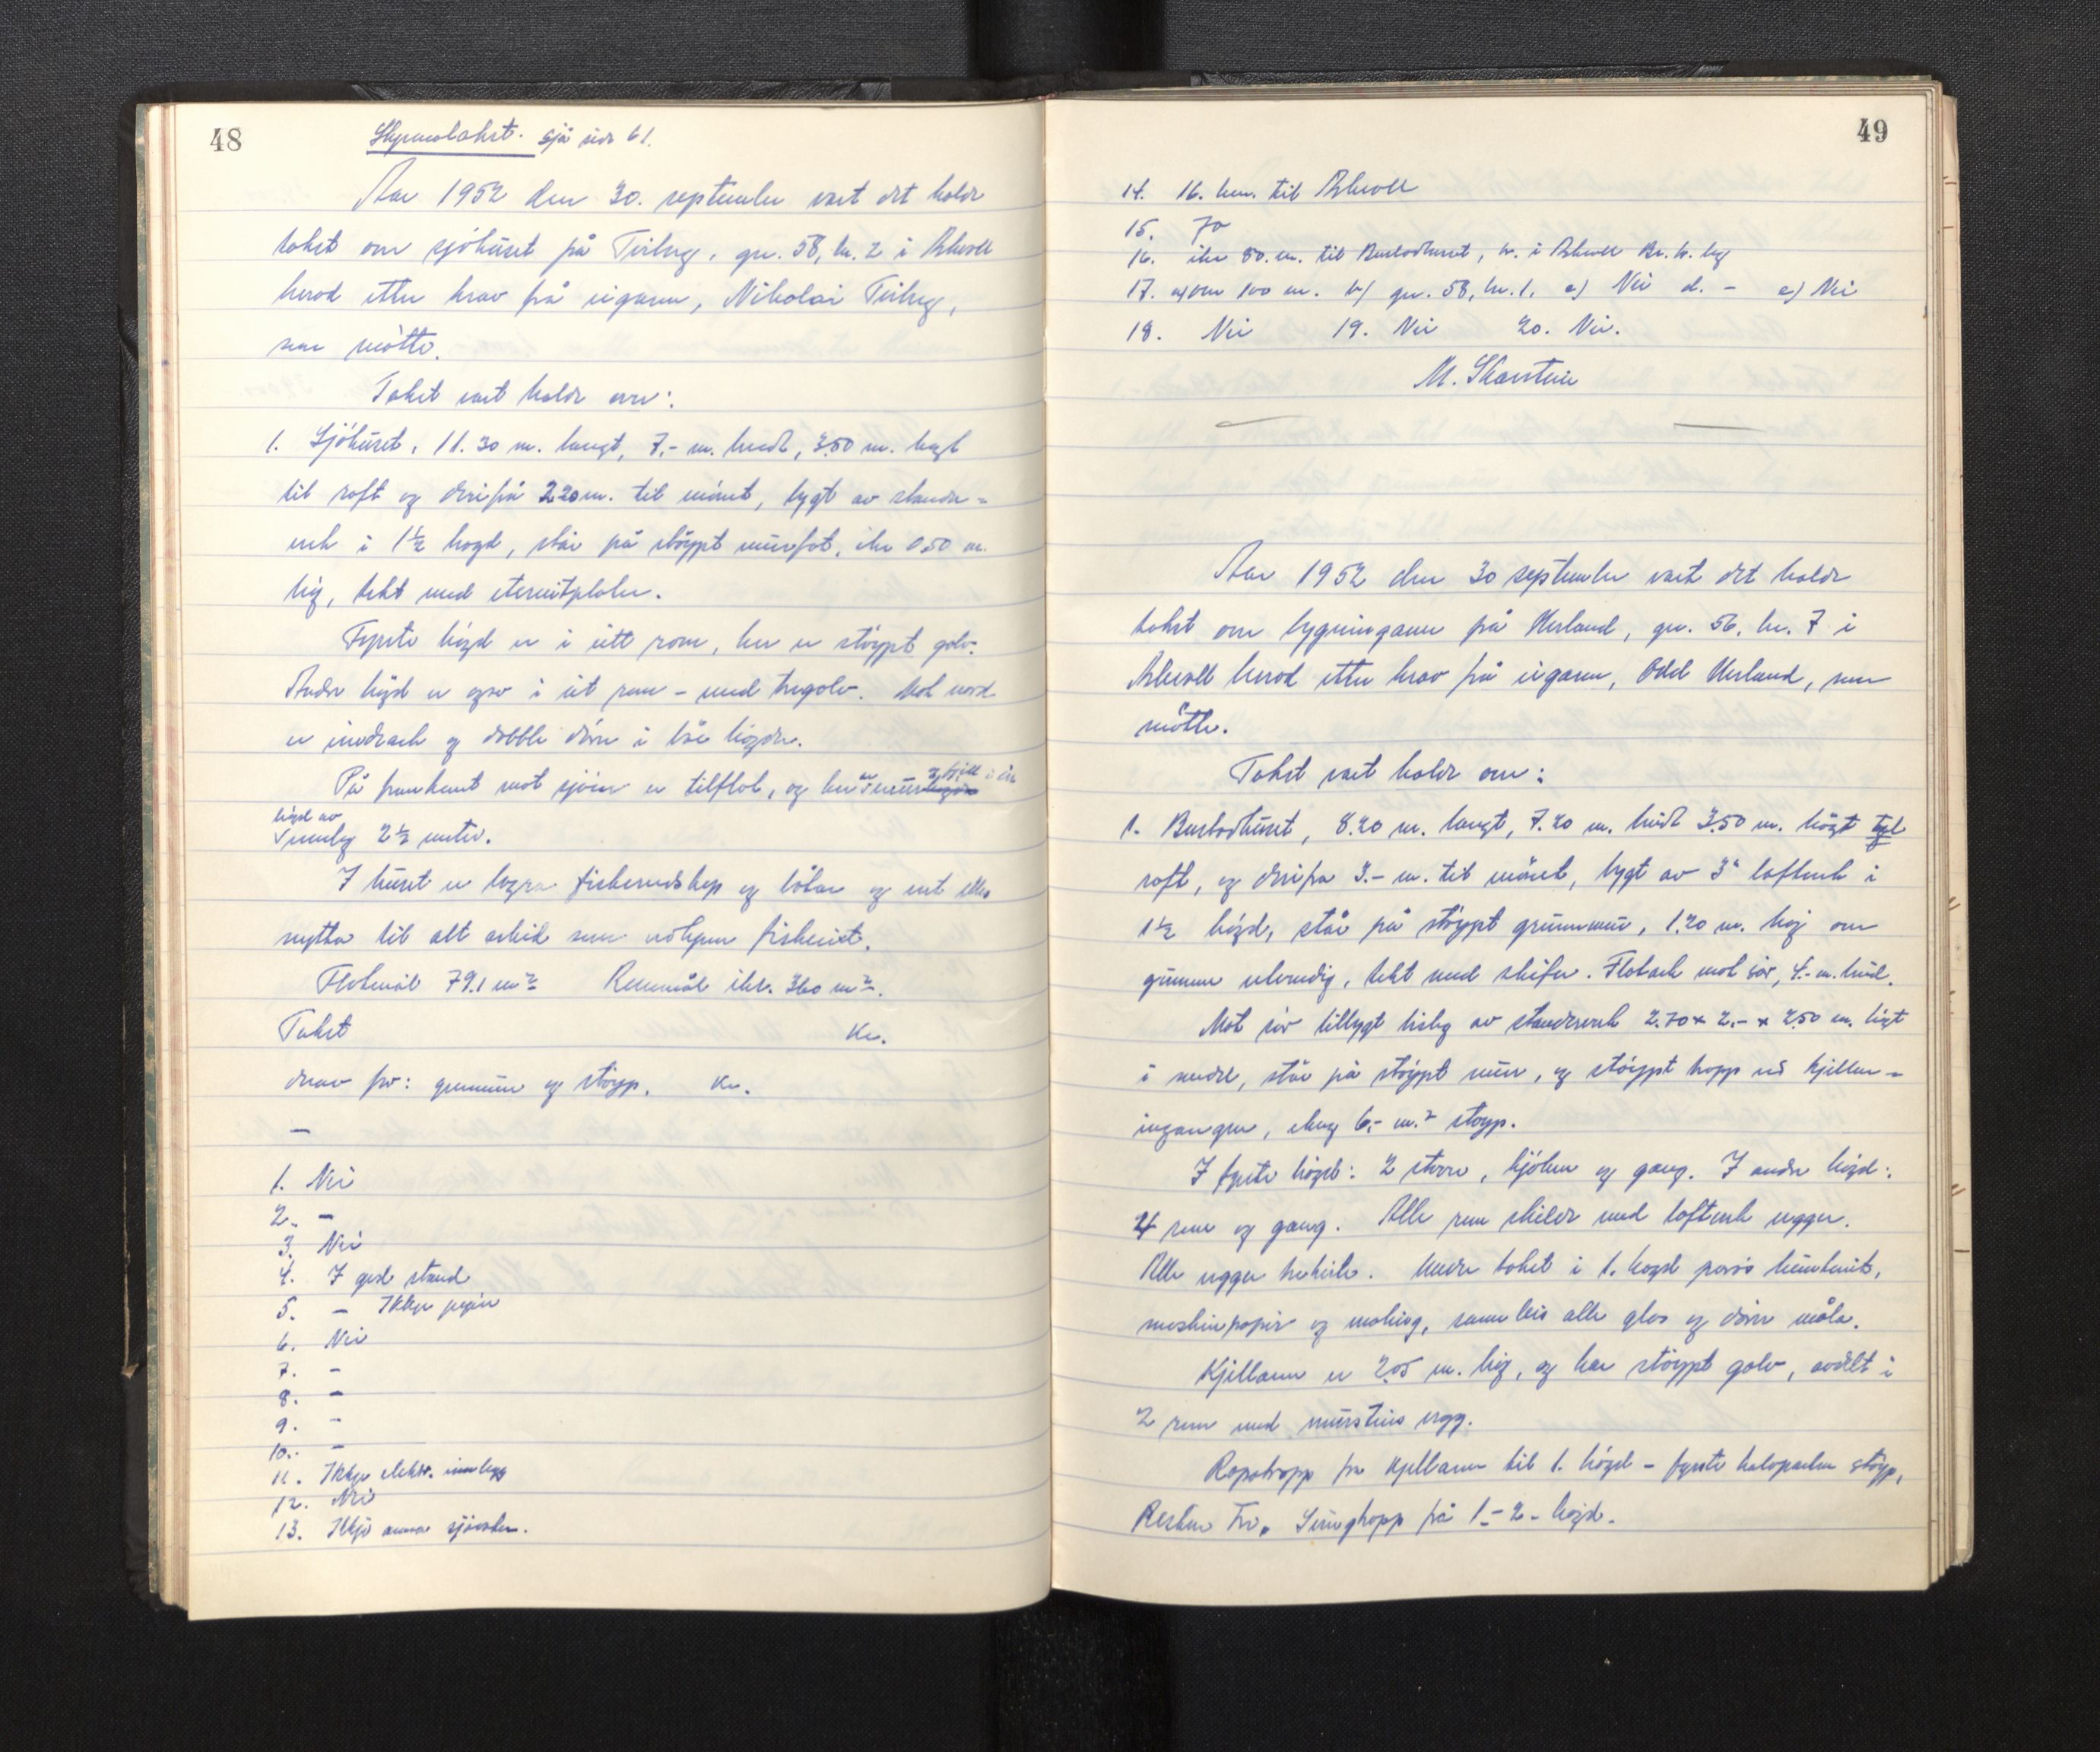 48
Skjønnstakst. sjå side 61.
Aar 1952 den 30. september vart det halde
takst over sjøhuset på Teilug, gnr. 58, bnr. 2 i Askvoll
herad etter krav frå eigaren, Nikolai Teilug,
som møtte.
Takst vart halde over:
1. Sjøhuset, 11.30 m. langt, 7.- m. breidt, 3.50 m. høgt
til raft og derifrå 2.20 m. til mønet, bygt av stander-
verk i 1½ høgd, står på støypt murfot, ikr 0.50 m.
høg, tekt med eternitplater.
Fyrste høgd er i eitt rom, her er støypt golv.
Andre høgd er også i eit rom - med tregolv. Mot nord
er innedrach og dobble dører i båe høgder.
På framkant mot sjøen er tilflot, og her er mur
høgd av
umlag 2½ meter.
I huset er lagra fiskereidskap og båtar og vert elles
nytta til alt arbeid som vedkjem fisket.
Flatemål 79.1 m² Rommål ikr. 360 m³.
Takst Kr.
derav for: grunnmur og støyp. Kr.
—
1. Nei
2. -
3. Nei
4. I god stand
5. - Ikkje peijn
6. Nei
7. -
8. -
9. -
10. -
11. Ikkje elektr. innlegg
12. Nei
13. Ikkje annan sjøvaten.
49
14. 16. km. til Askvoll
15. Ja
16. ikr 80. m. til Buslodhuset, tr. i Askvoll Br. tr. lag
17. a) over 100 m. b) gnr. 58, bnr. 1. c) Nei d. - e) Nei
18. Nei 19. Nei 20. Nei.
M. Skarstein
Aar 1952 den 30 september vart det halde
takst over bygningane på Herland, gnr. 56, bnr. 7 i
Askvoll herad etter krav frå eigaren, Odd Herland, som
møtte.
Takst vart halde over:
1. Buslodhuset, 8.20 m. langt, 7.20 m. breidt 3.50 m. høgt til
raft, og derifrå 3.- m. til mønet, bygt av 3" lafteverk i
1½ høgd, står på støypt grunnmur, 1.20 m. høg over
grunnen utvendig, tekt med skifer. Flatark mot sør, 4.- m. breid.
Mot sør tilbygt bislag av standerverk 2.70 x 2.- x 2.50 m. høgt
i medel, står på støypt mur, og støypt trapp ved kjellar-
ingangen, ikring 6.- m.² støyp.
I fyrste høgd: 2 stover, kjøken og gang. I andre høgd:
4 rom og gang. Alle rom skilde med lafteverk vegger.
Alle vegger trekvite. Under taket i 1. høgd porøs huntonit,
maskinpapir og maling, sameleis alle glas og dører måla.
Kjellaren er 2.05 m. høg, og har støypt golv, avdelt i
2 rom med murstein vegg.
Rapatrapp fra kjellaren til 1. høgd - fyrste halvparten støyp,
Resten Tre. Svingtrapp frå 1.- 2. høgd.